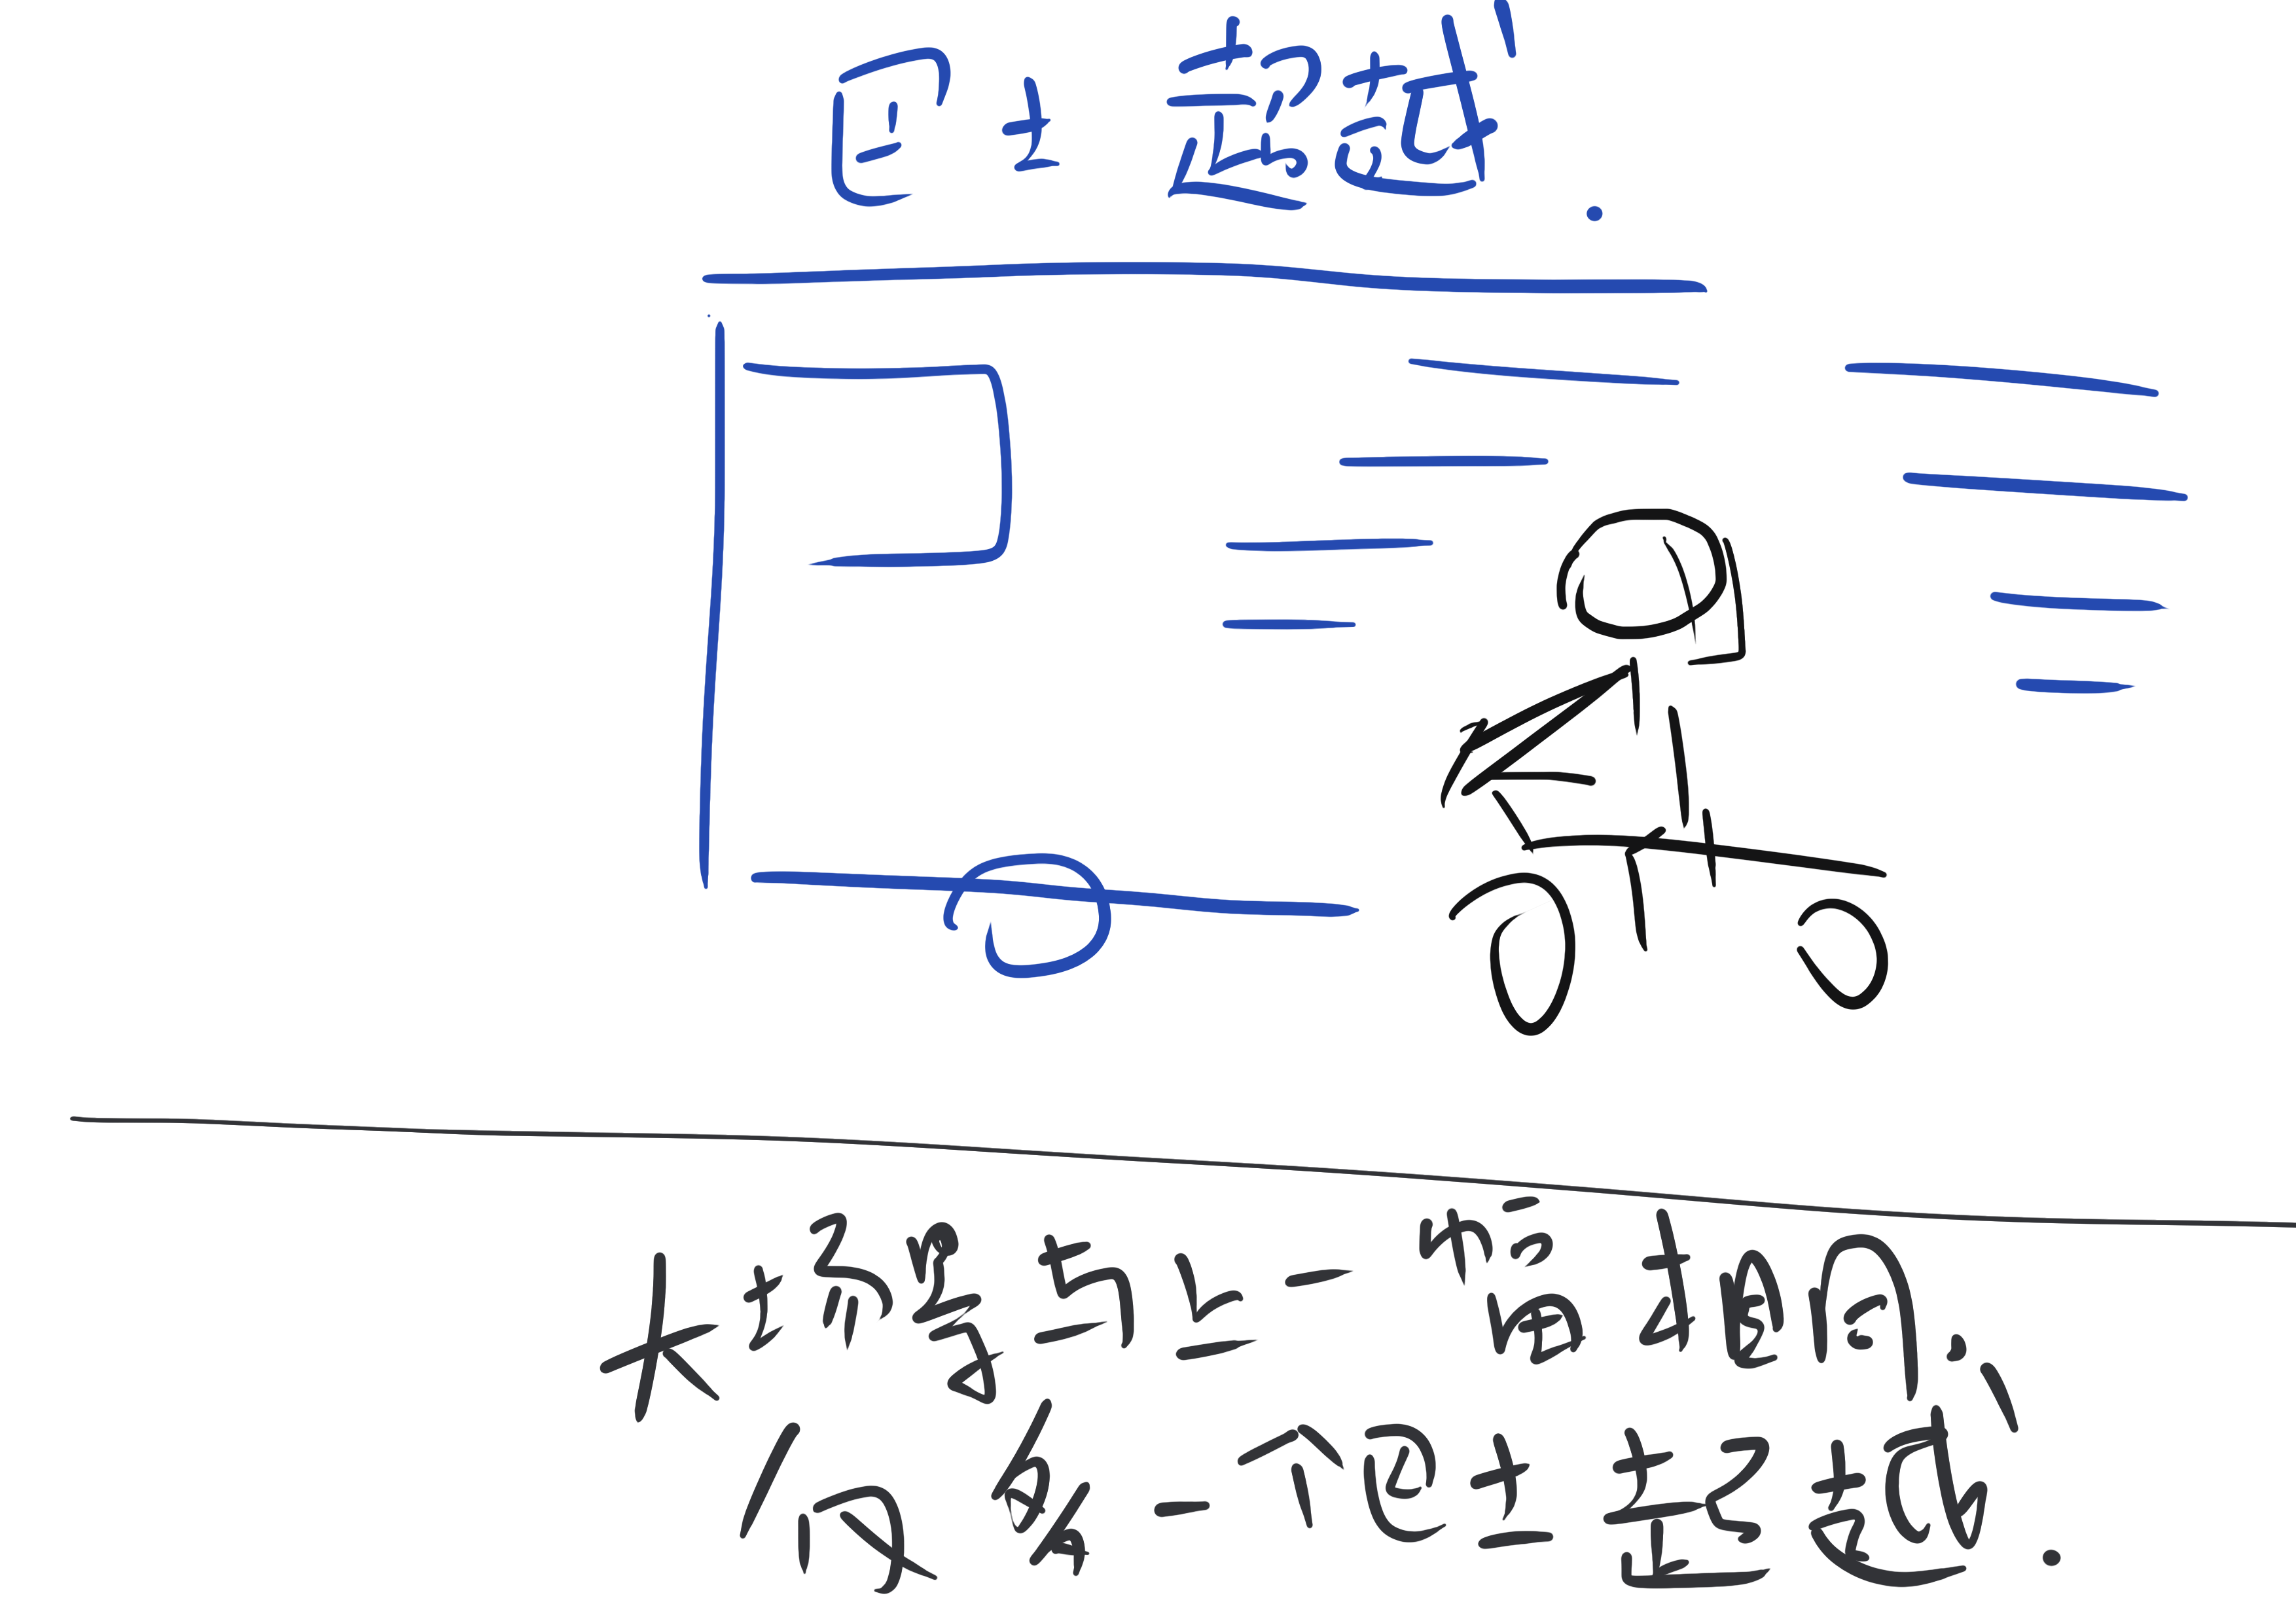 巴士 超越.
大场景与上一幅 相同,
仅多一个巴士超越.